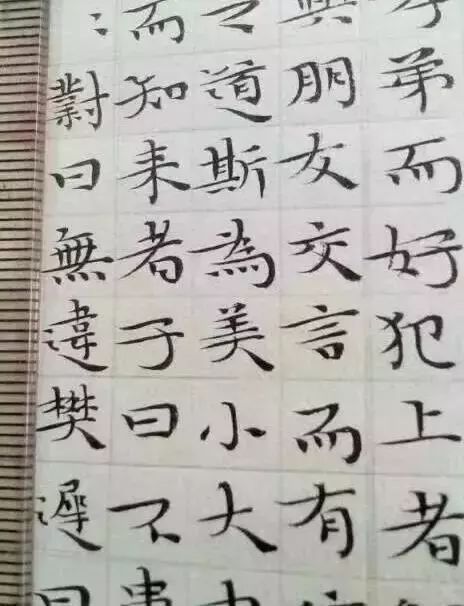 弟而好犯上者
與朋友交言而有
之道斯為美小大
而知来者子曰不
對曰無違樊遲曰